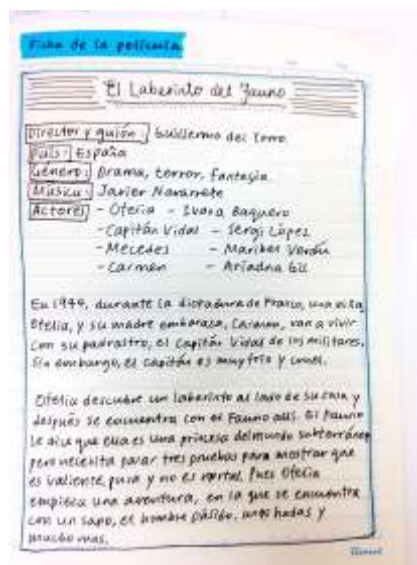 Ficha de la película
El Laberinto del Fauno
Director y guión: Guillermo del Torro
País: España
Género: Drama, terror, fantasía
Música: Javier Navarrete
Actores - Ofelia - Ivana Baquero
- Capitán Vidal - Sergi López
- Mecedes - Maribel Verdú
- Carmen - Ariadna Gil
En 1944, durante la dictadura de Franco, una niña,
Ofelia, y su madre embaraza, Carmen, van a vivir
con su padrastro, el Capitán Vidal de los militares.
Sin embargo, el capitán es muy frío y cruel.
Ofelia descubre un laberinto al lado de su casa y
después se encuentra con el Fauno allí. El Fauno
le dice que ella es una princesa del mundo subterráneo
pero necesita pasar tres pruebas para mostrar que
es valiente, pura y no es mortal. Pues Ofelia
empieza una aventura, en la que se encuentra
con un sapo, el hombre pálido, unos hadas y
mucho mas.